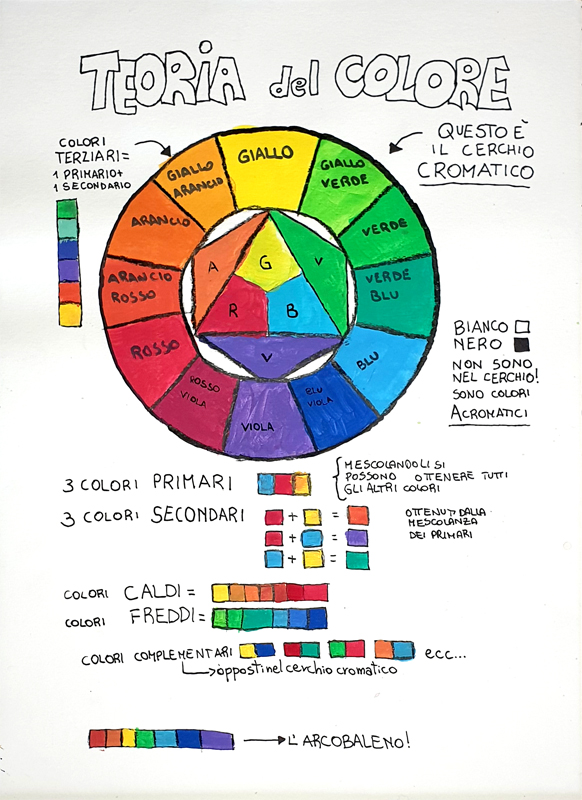 TEORIA del COLORE
COLORI
TERZIARI=
1 PRIMARIO+
1 SECONDARIO
QUESTO È
IL CERCHIO
CROMATICO
GIALLO
GIALLO
ARANCIO
GIALLO
VERDE
ARANCIO
VERDE
ARANCIO
ROSSO
VERDE
BLU
ROSSO
BLU
ROSSO
VIOLA
VIOLA
BLU
VIOLA
A
G
V
R
B
V
BIANCO
NERO
NON SONO
NEL CERCHIO!
SONO COLORI
ACROMATICI
3 COLORI PRIMARI
MESCOLANDOLI SI
POSSONO OTTENERE TUTTI
GLI ALTRI COLORI
3 COLORI SECONDARI
+ =
+ =
+ =
OTTENUTI DALLA
MESCOLANZA
DEI PRIMARI
COLORI CALDI =
COLORI FREDDI=
COLORI COMPLEMENTARI ecc...
opposti nel cerchio cromatico
L'ARCOBALENO!